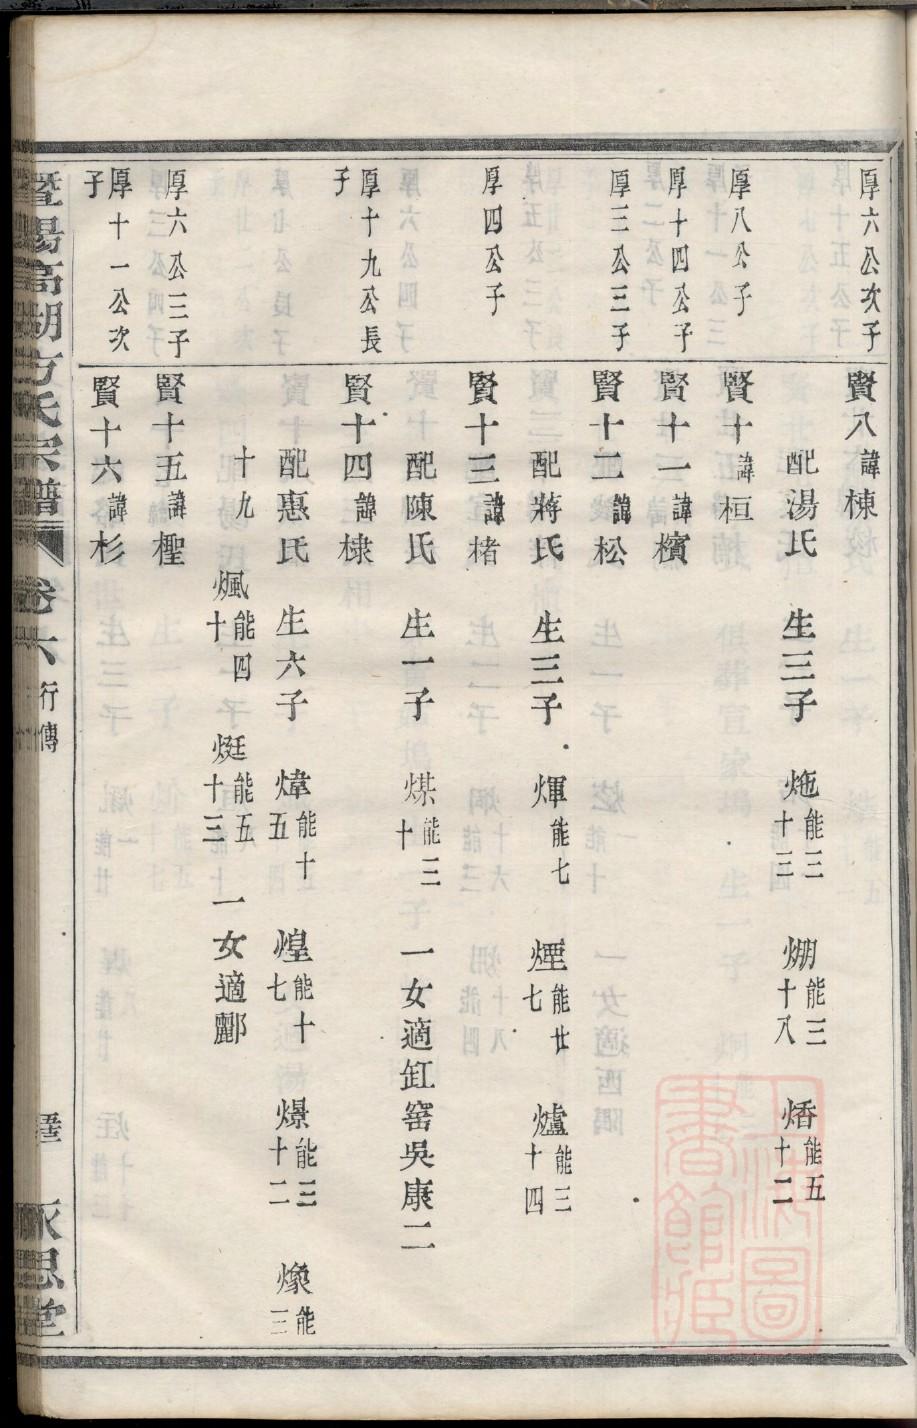 厚六公次子
賢八諱棟
配湯氏 生三子 炧能三十三 焩能三十八 㷛能五十二
厚八公子
賢十諱桓
厚十四公子
賢十一諱檳
厚三公三子
賢十二諱松
配蔣氏 生三子 煇能七 煙能廿七 爐能三十四
厚四公子
賢十三諱楮
配陳氏 生一子 煤能三十 一女適缸窰吳康二
厚十九公長子
賢十四諱棣
配惠氏 生六子 煒能十五 煌能十七 燝能三十二 㷟能三
十九 煈能四十 烶能五十三 一女適酈
厚六公三子
賢十五諱檉
厚十一公次子
賢十六諱杉
暨陽高湖方氏宗譜 卷六 行傳 永思堂